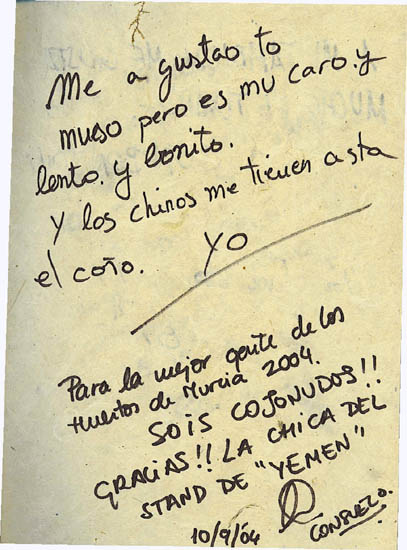 Me a gustao to
mueso pero es mu caro. y
lento. y bonito.
Y los chinos me tienen asta
el coño. YO
Para la mejor gente de los
Huertos de Murcia 2004.
SOIS COJONUDOS!!
GRACIAS!! LA CHICA DEL
STAND DE "YEMEN"
10/9/04 CONSUELO.